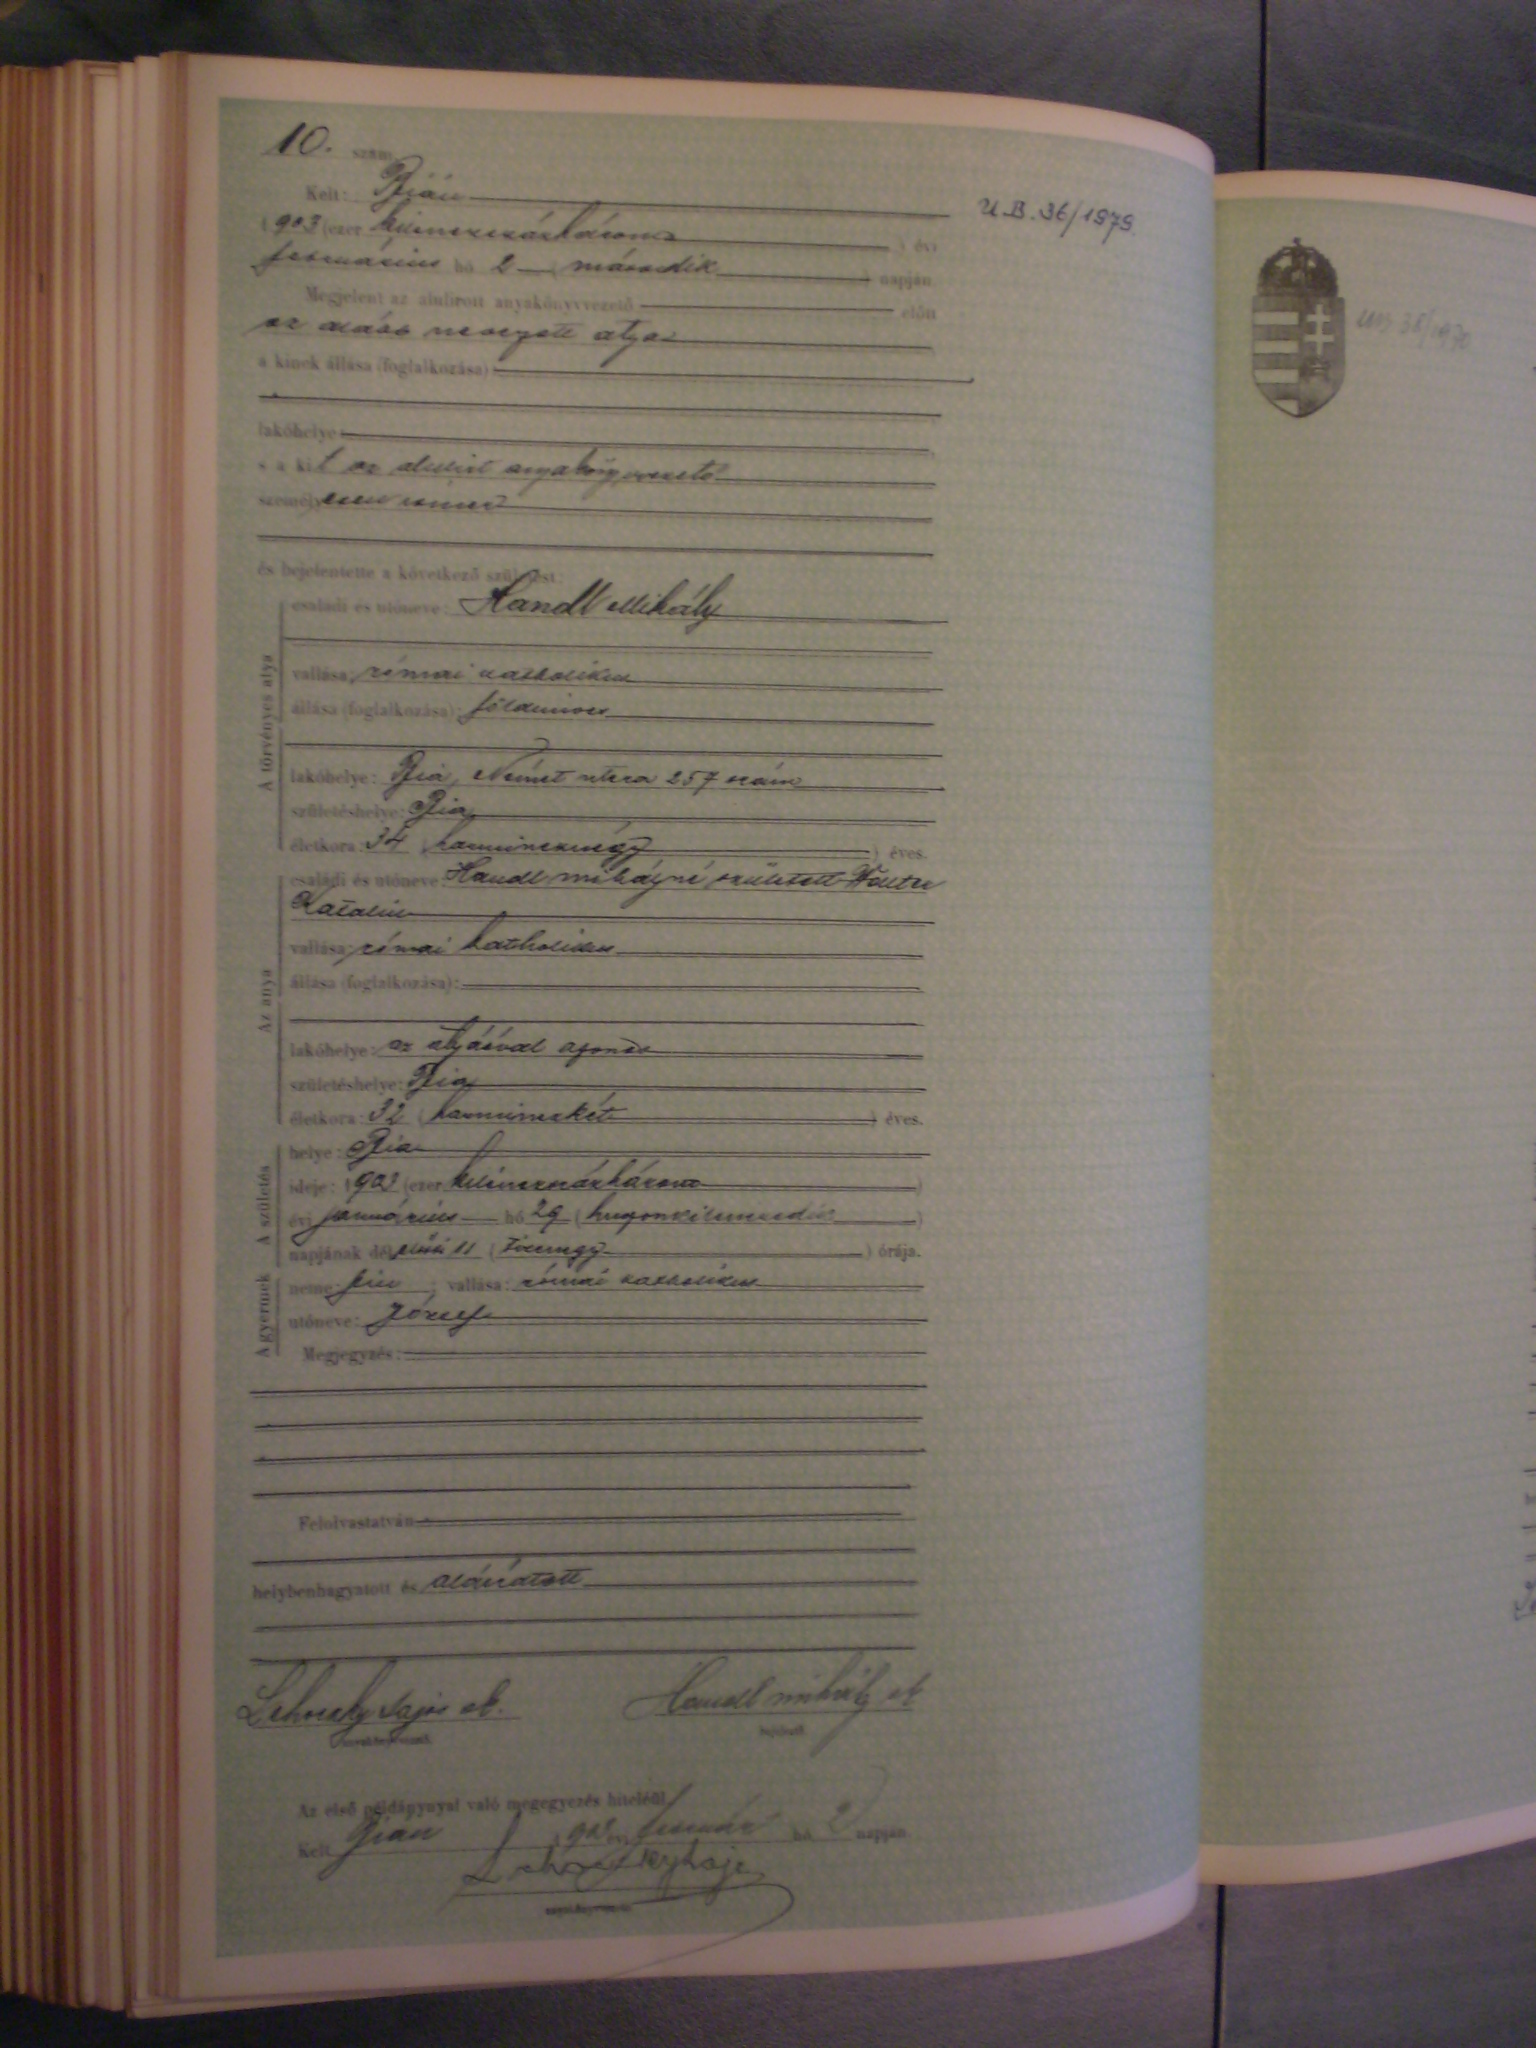 10. szám
Kelt: Bián
1903 (ezer kilenczszázhárom) évi
február hó 2 (második) napján
Megjelent az alulirott anyakönyvvezető előtt
az alább nevezett atya
a kinek állása (foglalkozása)
lakóhelye
s a kit az alulirt anyakönyvvezető
személyesen ismer
és bejelentette a következő születést:
A törvényes atya
családi és utóneve: Handl Mihály
vallása: római katholikus
állása (foglalkozása): földmives
lakóhelye: Bia, Német utcza 257 szám
születéshelye: Bia
életkora: 34 (harmincznégy) éves.
Az anya
családi és utóneve: Handl Mihályné született
Katalin
vallása: római katholikus
állása (foglalkozása):
lakóhelye: az atyáéval azonos
születéshelye: Bia
életkora: 32 (harminczkét) éves.
A születés
helye: Bia
ideje: 1903 (ezer kilenczszázhárom)
évi január hó 29 (huszonkilenczedik)
napjának dél előtti 11 (tizenegy) órája.
A gyermek
neme: fiu; vallása: római katholikus
utóneve: József
Megjegyzés:
Felolvastatván
helybenhagyatott és aláiratott
Lehoczky Lajos sk. Handl Mihály sk
anyakönyvvezető. bejelentő.
Az első példánynyal való megegyezés hiteléül
Kelt Bián 1903 évi február hó 2 napján
anyakönyvvezető.
U.B. 36/1979.